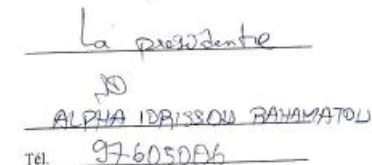 La presidente
ALPHA IDRISSOU RAHAMATOU
Tél. 97605086